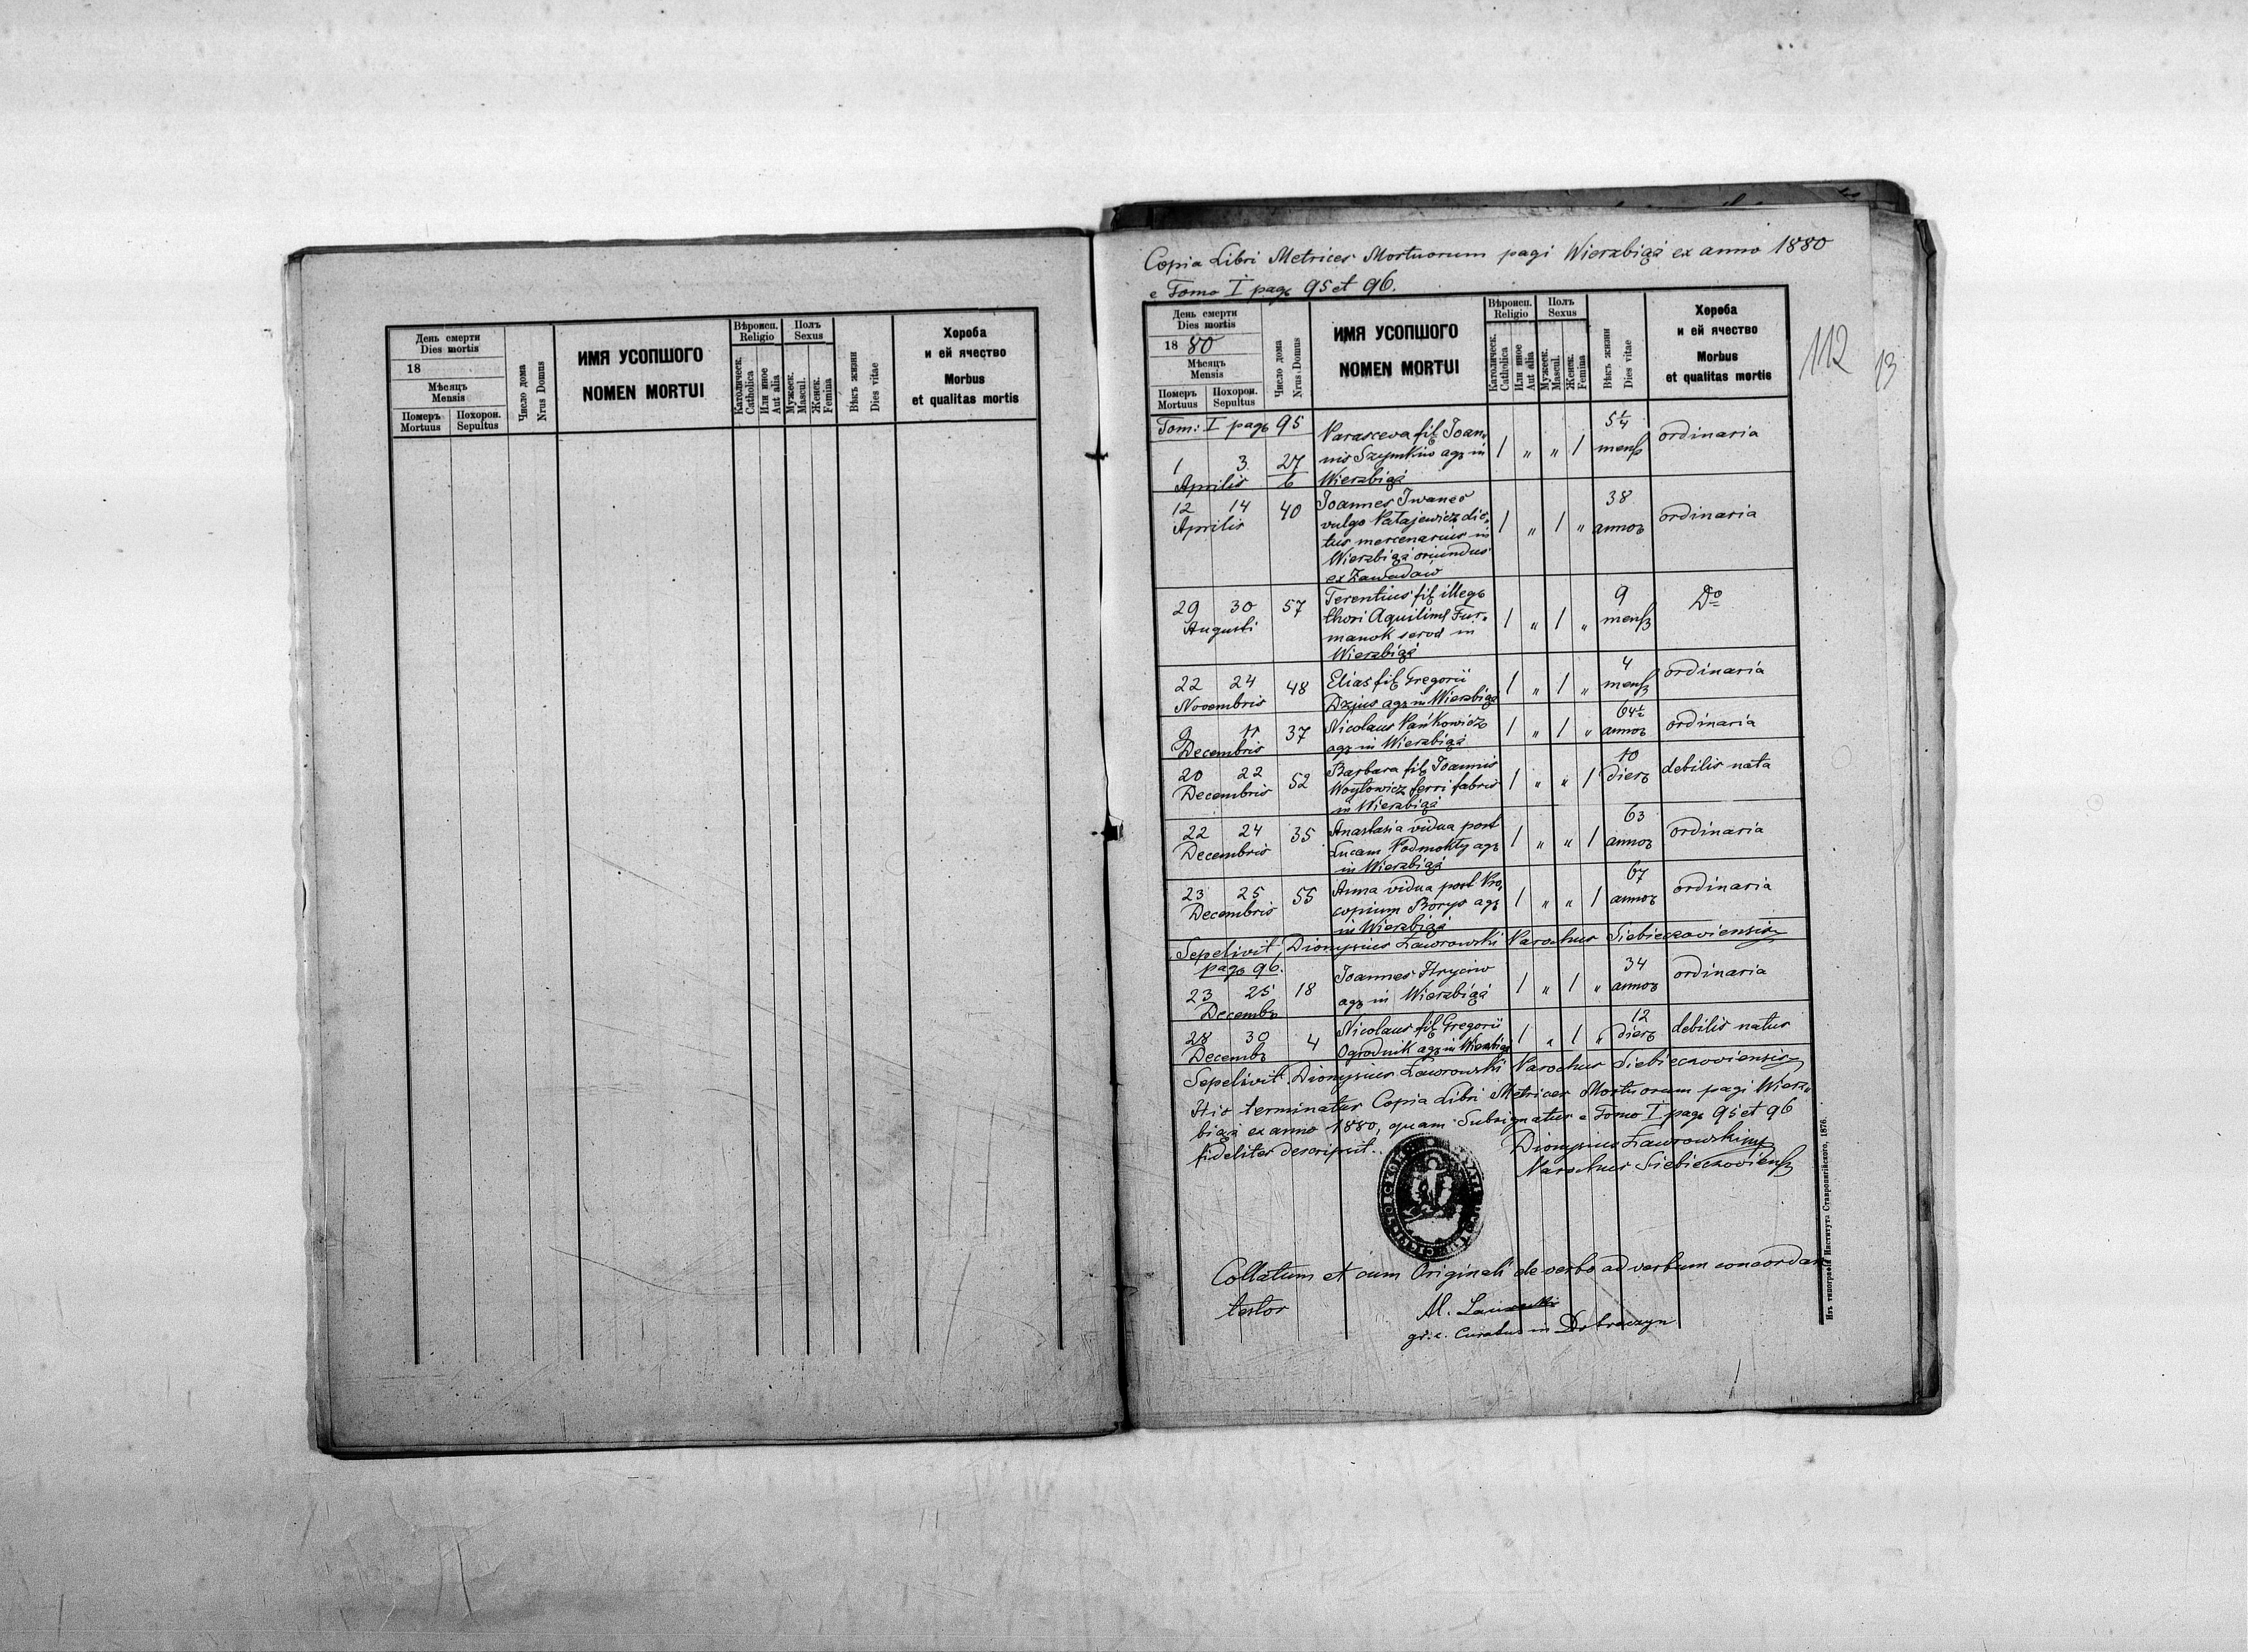 День смерти
Dies mortis
18
Мѣсяць
Mensis
Померъ
Mortuus
Похорон.
Sepultus
Число дома
Nrus Domus
ИМЯ УСОПШОГО
NOMEN MORTUI
Вѣроисп.
Religio
Католическ.
Catholica
Или иное
Aut alia
Полъ
Sexus
Мужеск.
Mascul.
Женск.
Femina
Вѣкъ жизни
Dies vitae
Хороба
и ей ячество
Morbus
et qualitas mortis
Copia Libri Metrices Mortuorum pagi Wierzbiąż ex anno 1880
e Tomo I pag 95 et 96.
112
13
День смерти
Dies mortis
18 80
Мѣсяць
Mensis
Померъ
Mortuus
Похорон.
Sepultus
Число дома
Nrus Domus
ИМЯ УСОПШОГО
NOMEN MORTUI
Вѣроисп.
Religio
Католическ.
Catholica
Или иное
Aut alia
Полъ
Sexus
Мужеск.
Mascul.
Женск.
Femina
Вѣкъ жизни
Dies vitae
Хороба
и ей ячество
Morbus
et qualitas mortis
Tom: I pag 95
Parasceva fil Joan-
nis Szymkiw agr in
Wierzbiąż
1 3 27/6 1 " " 1 5 1/4 mens ordinaria
Aprilis
12 14 40 Joannes Iwanec 1 " 1 " 38 annor ordinaria
Aprilis
vulgo Patajewicz dic-
tus mercenarius in
Wierzbiąż oriundus
ex Zawadów
29 30 57 Terentius fil illeg 1 " 1 " 9 mens Do
Augusti
thori Aquilinae Fur-
manok serva in
Wierzbiąż
22 24 48 Elias fil Gregorii 1 " 1 " 4 mens ordinaria
Novembris Dzjus agr in Wierzbiąż
9 11 37 Nicolaus Pańkowicz 1 " 1 " 64 1/2 annor ordinaria
Decembris agr in Wierzbiąż
20 22 52 Barbara fil Joannis 1 " " 1 10 dier debilis nata
Decembris Woytowicz ferri fabris
in Wierzbiąż
22 24 35 Anastasia vidua post 1 " " 1 63 annor ordinaria
Decembris Lucam Podmokły agr
in Wierzbiąż
23 25 55 Anna vidua post Pro- 1 " " 1 67 annor ordinaria
Decembris copium Borys agr
in Wierzbiąż
Sepelivit, Dionysius Ławrowski Parochus Siebieczoviensis
pag 96.
23 25 18 Joannes Hryciw 1 " 1 " 34 annor ordinaria
Decembr agr in Wierzbiąż
28 30 4 Nicolaus fil Gregorii 1 " 1 " 12 dier debilis natus
Decembr Ogrodnik agr in Wierzbiąż
Sepelivit Dionysius Ławrowski Parochus Siebieczoviensis
Hic terminatur Copia Libri Metrices Mortuorum pagi Wierz-
biąż ex anno 1880, quam Subsignatus e Tomo I pag 95 et 96
fideliter descripsit.
Dionysius Ławrowski
Parochus Siebieczoviens
Collatum et cum Originali de verbo ad verbum concordare
testor
gr. c. Curatus in Dobraczyn
Изъ типографіи Института Ставропигійского, 1876.